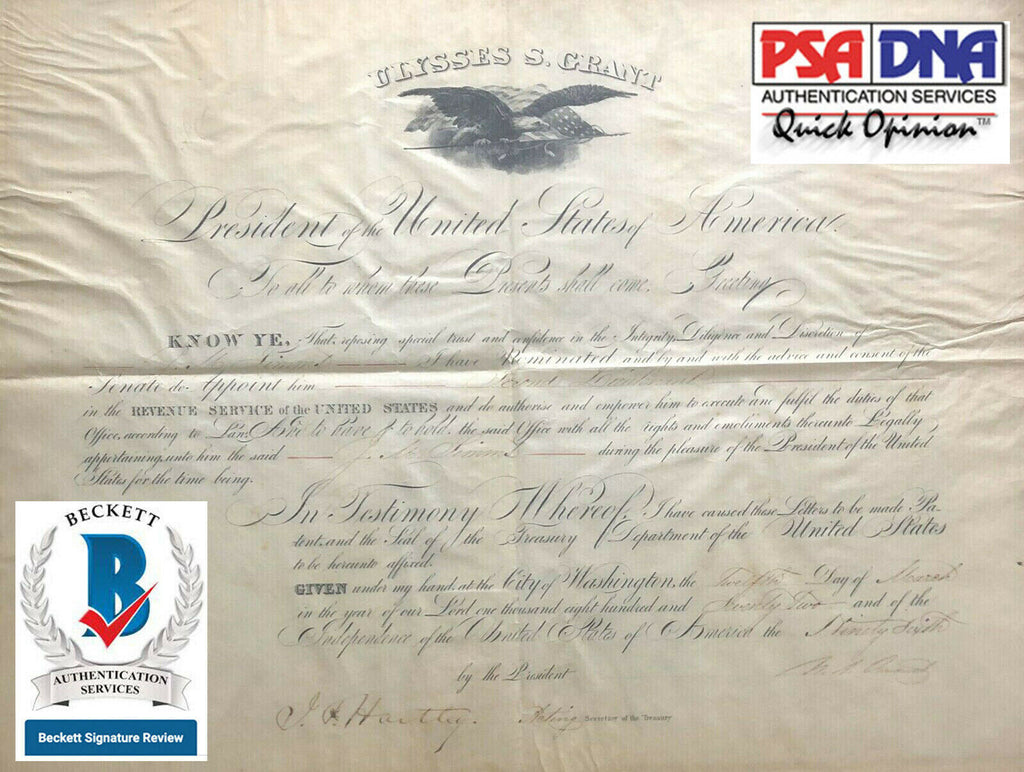 PSA DNA
AUTHENTICATION SERVICES
Quick Opinion™
ULYSSES S. GRANT
President of the United States of America.
To all to whom these Presents shall come, Greeting
KNOW YE, That, reposing special trust and confidence in the Integrity, Diligence and Discretion of
I have Nominated and by and with the advice and consent of the
Senate do Appoint him Second Lieutenant
in the REVENUE SERVICE of the UNITED STATES and do authorise and empower him to execute and fulfil the duties of that
Office, according to Law: And to have & to hold, the said Office with all the rights and emoluments thereunto Legally
appertaining, unto him the said J. M. Simms during the pleasure of the President of the United
States for the time being.
In Testimony Whereof, I have caused these Letters to be made Pa-
tent, and the Seal of the Treasury Department of the United States
to be hereunto affixed.
GIVEN under my hand, at the City of Washington, the Twelfth Day of March
in the year of our Lord one thousand eight hundred and Seventy Two and of the
Independence of the United States of America the Ninety Sixth
by the President
J. F. Hartley. Acting Secretary of the Treasury
BECKETT
B
AUTHENTICATION
SERVICES
Beckett Signature Review